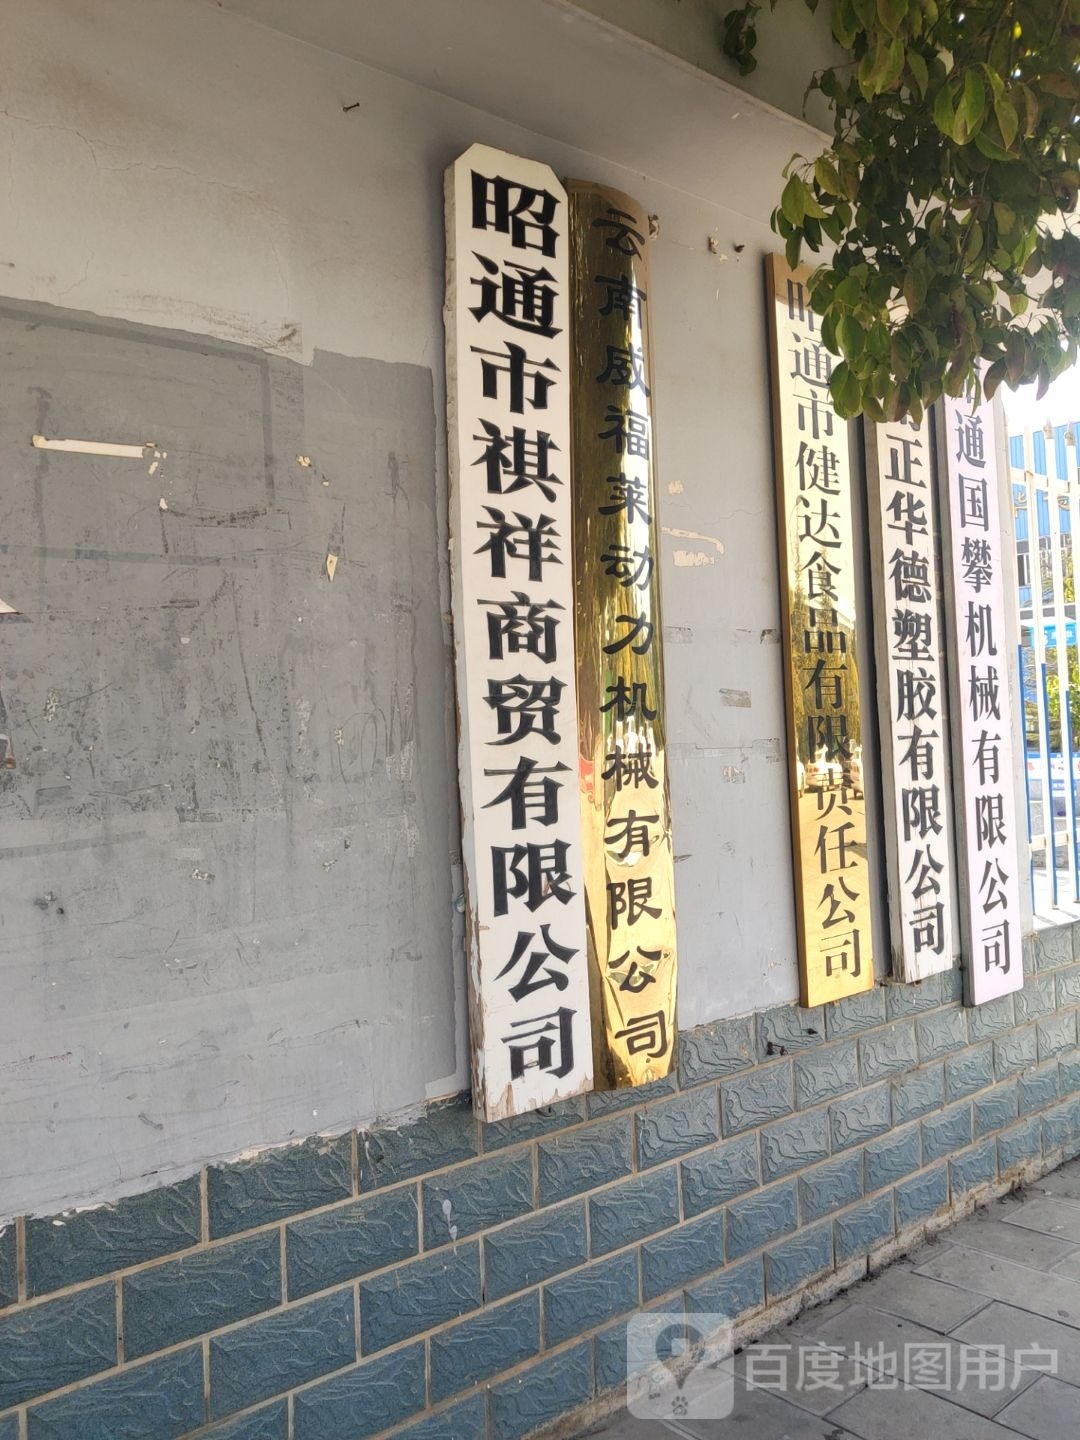 昭通市祺祥商贸有限公司
云南威福莱动力机械有限公司
昭通市健达食品有限责任公司
正华德塑胶有限公司
通国攀机械有限公司
百度地图用户